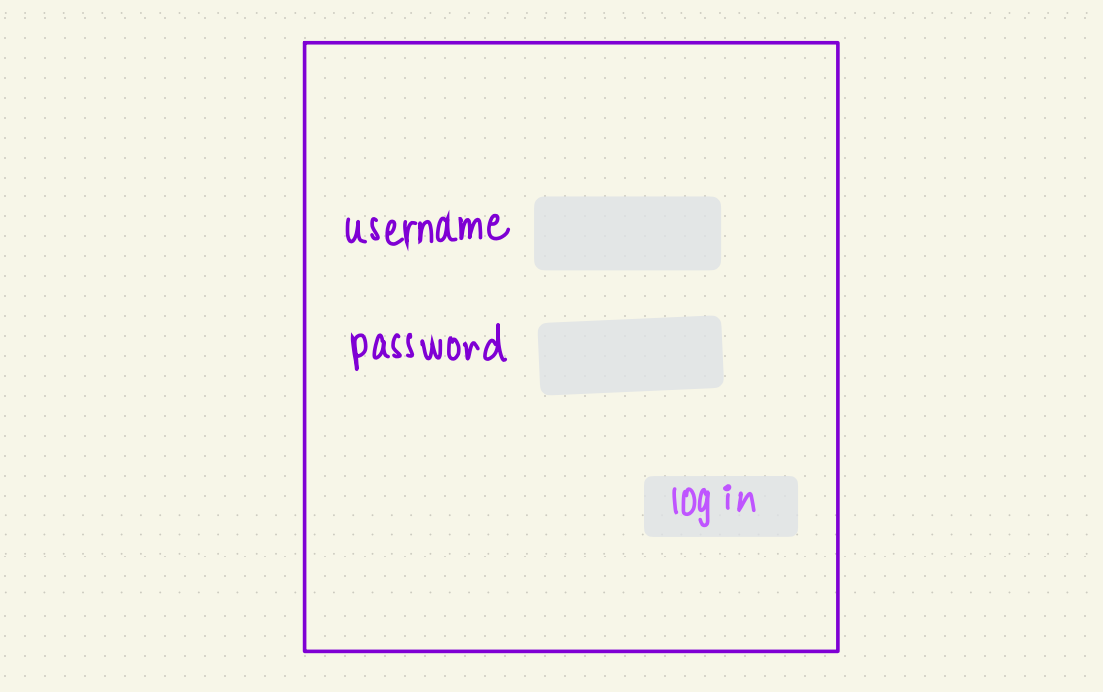 username
password
log in